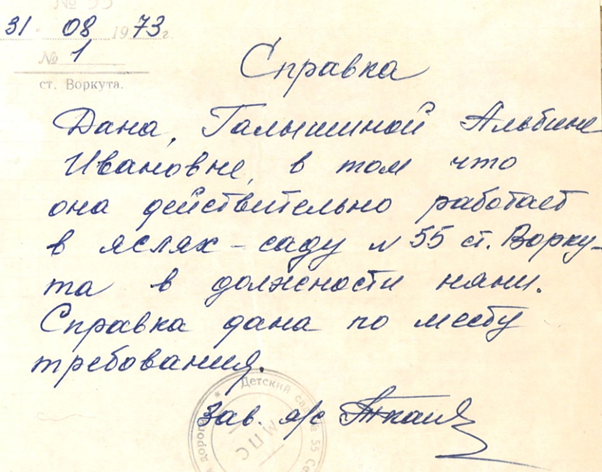 31. 08 1973г.
№ 1
ст. Воркута.
Справка
Дана, Галышиной Альбине
Ивановне, в том что
она действительно работает
в яслях-саду №55 ст. Ворку-
та в должности няни.
Справка дана по месту
требования.
Зав. я/с
Детский 55
МПС